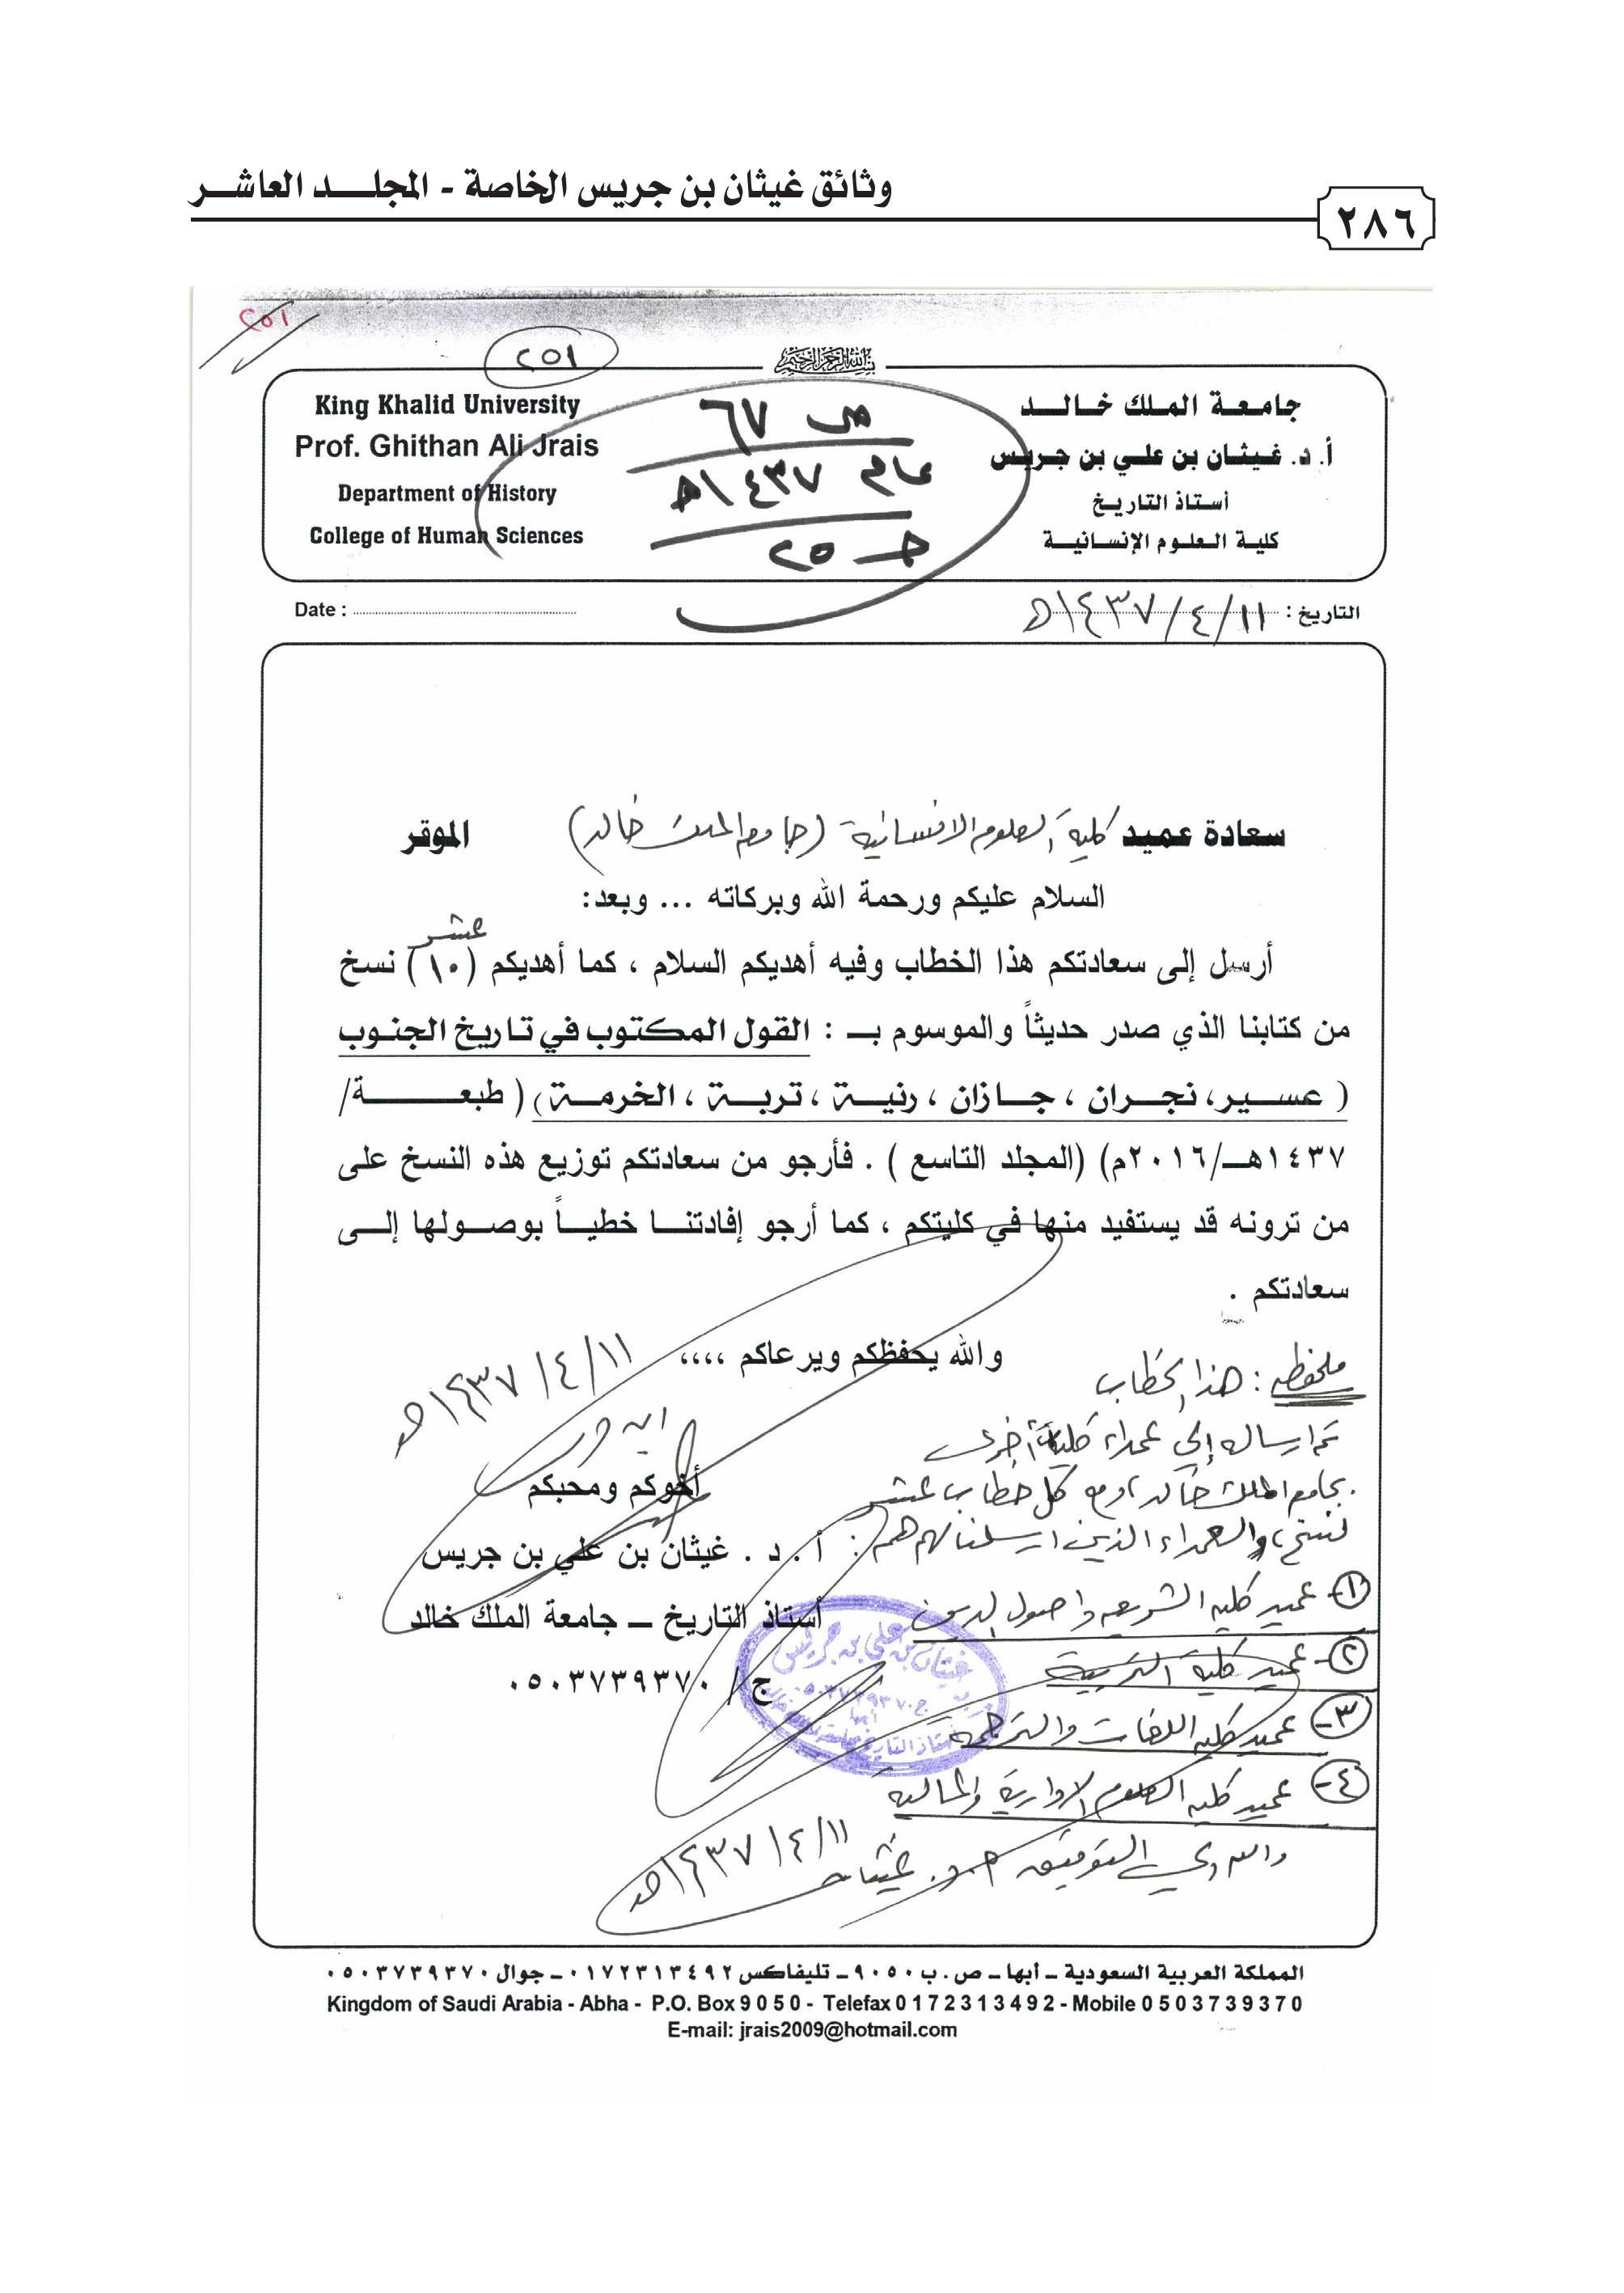 وثائق غيثان بن جريس الخاصة - المجلد العاشر
٢٨٦
٢٥١
٢٥١
بسم الله الرحمن الرحيم
جامعة الملك خالد
أ. د. غيثان بن علي بن جريس
أستاذ التاريخ
كلية العلوم الإنسانية
King Khalid University
Prof. Ghithan Ali Jrais
Department of History
College of Human Sciences
ص ٦٧
عام ١٤٣٧هـ
حـ ٢٥
التاريخ : ١١/٤/١٤٣٧هـ
Date :
سعادة عميد كلية العلوم الإنسانية (جامعة الملك خالد) الموقر
السلام عليكم ورحمة الله وبركاته ... وبعد:
أرسل إلى سعادتكم هذا الخطاب وفيه أهديكم السلام ، كما أهديكم (١٠) عشر نسخ
من كتابنا الذي صدر حديثاً والموسوم بـ : القول المكتوب في تاريخ الجنوب
( عسير، نجران ، جازان ، رنية ، تربة ، الخرمة) ( طبعة/
١٤٣٧هـ/٢٠١٦م) (المجلد التاسع ) . فأرجو من سعادتكم توزيع هذه النسخ على
من ترونه قد يستفيد منها في كليتكم ، كما أرجو إفادتنا خطياً بوصولها إلى
سعادتكم .
والله يحفظكم ويرعاكم ،،،،
١١/٤/١٤٣٧هـ
أخوكم ومحبكم
أ . د . غيثان بن علي بن جريس
أستاذ التاريخ – جامعة الملك خالد
ج/ ٠٥٠٣٧٣٩٣٧٠
ملحوظه : هذا الخطاب
تم ارساله إلى عمداء كليات أخرى
بجامعة الملك خالد، ومع كل خطاب عشر
نسخ، والعمداء الذين ارسلنا لهم هم :
١- عميد كلية الشريعه واصول الدين
٢- عميد كلية التربية
٣- عميد كلية اللغات والترجمة
٤- عميد كلية العلوم الادارية والمالية
والله ولي التوفيق غيثان
١١/٤/١٤٣٧هـ
غيثان بن علي بن جريس
ج ٠٥٠٣٧٣٩٣٧٠
أبها
أستاذ التاريخ بجامعة الملك خالد
المملكة العربية السعودية – أبها – ص. ب ٩٠٥٠ – تليفاكس ٠١٧٢٣١٣٤٩٢ – جوال ٠٥٠٣٧٣٩٣٧٠
Kingdom of Saudi Arabia - Abha - P.O. Box 9 0 5 0 - Telefax 0 1 7 2 3 1 3 4 9 2 - Mobile 0 5 0 3 7 3 9 3 7 0
E-mail: jrais2009@hotmail.com